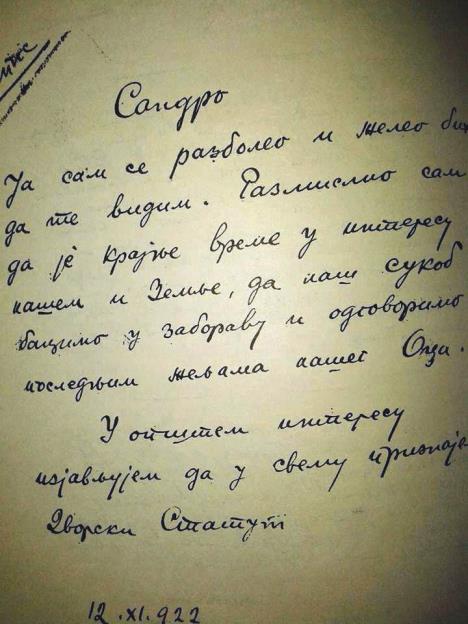 Сандро
Ја сам се разболео и желео бих
да те видим. Размислио сам
да је крајње време у интересу
нашем и Земље, да наш сукоб
бацимо у заборав и одговоримо
последњим жељама нашег Оца.
У општем интересу
изјављујем да у свему признаје
Дворски Статут
12.XI.922